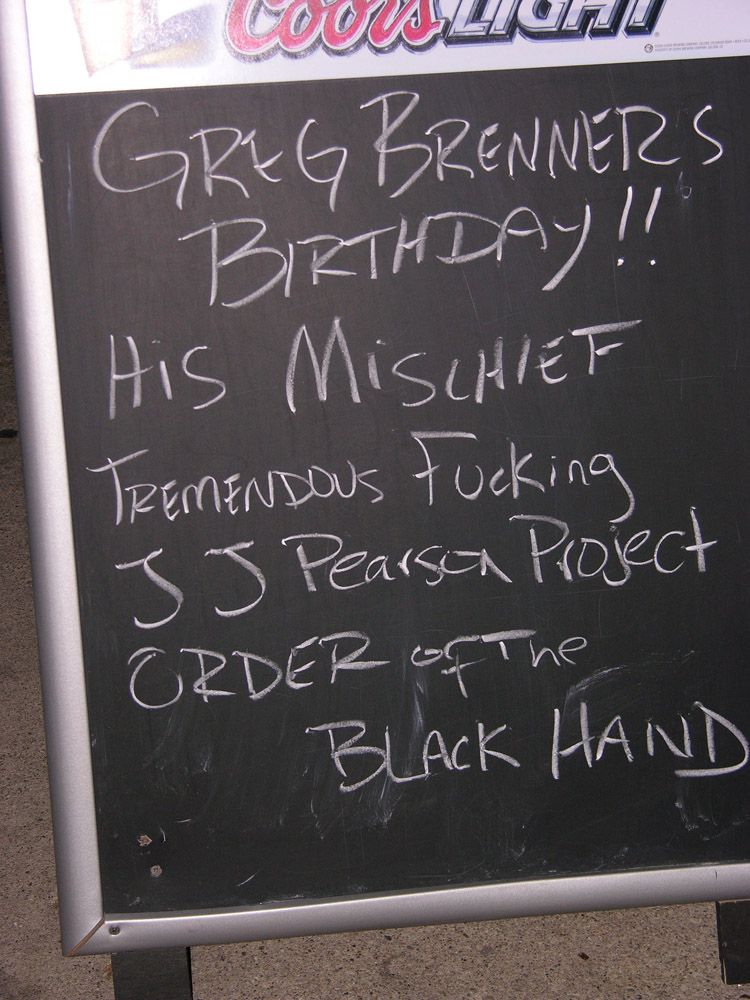 Coors LIGHT
GREG BRENNER'S
BIRTHDAY!!
HIS MISCHIEF
TREMENDOUS Fucking
JJ Pearson Project
ORDER OF THE
BLACK HAND